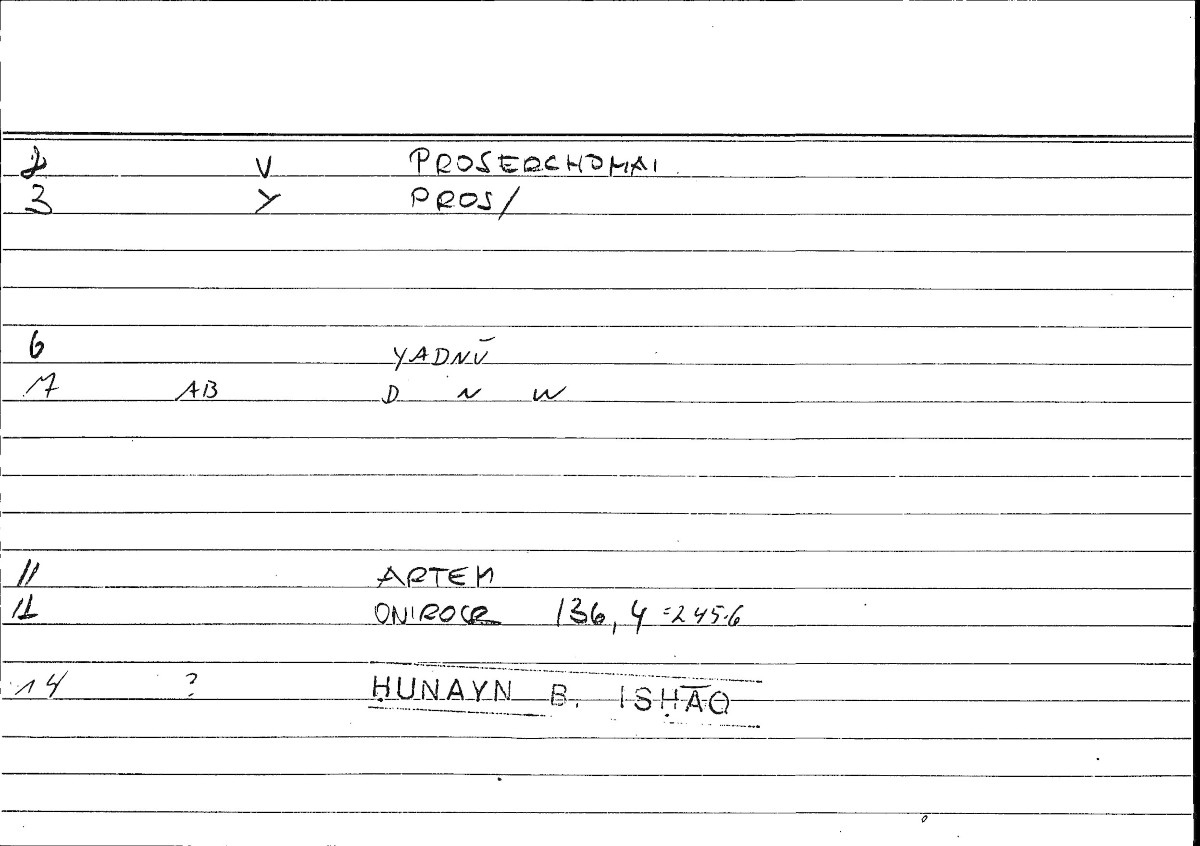 2 V PROSERCHOMAI
3 Y PROS/
6 YADNŪ
7 AB D N W
11 ARTEM
12 ONIROCR 136, 4 =245.6
14 ? ḤUNAYN B. ISḤĀQ